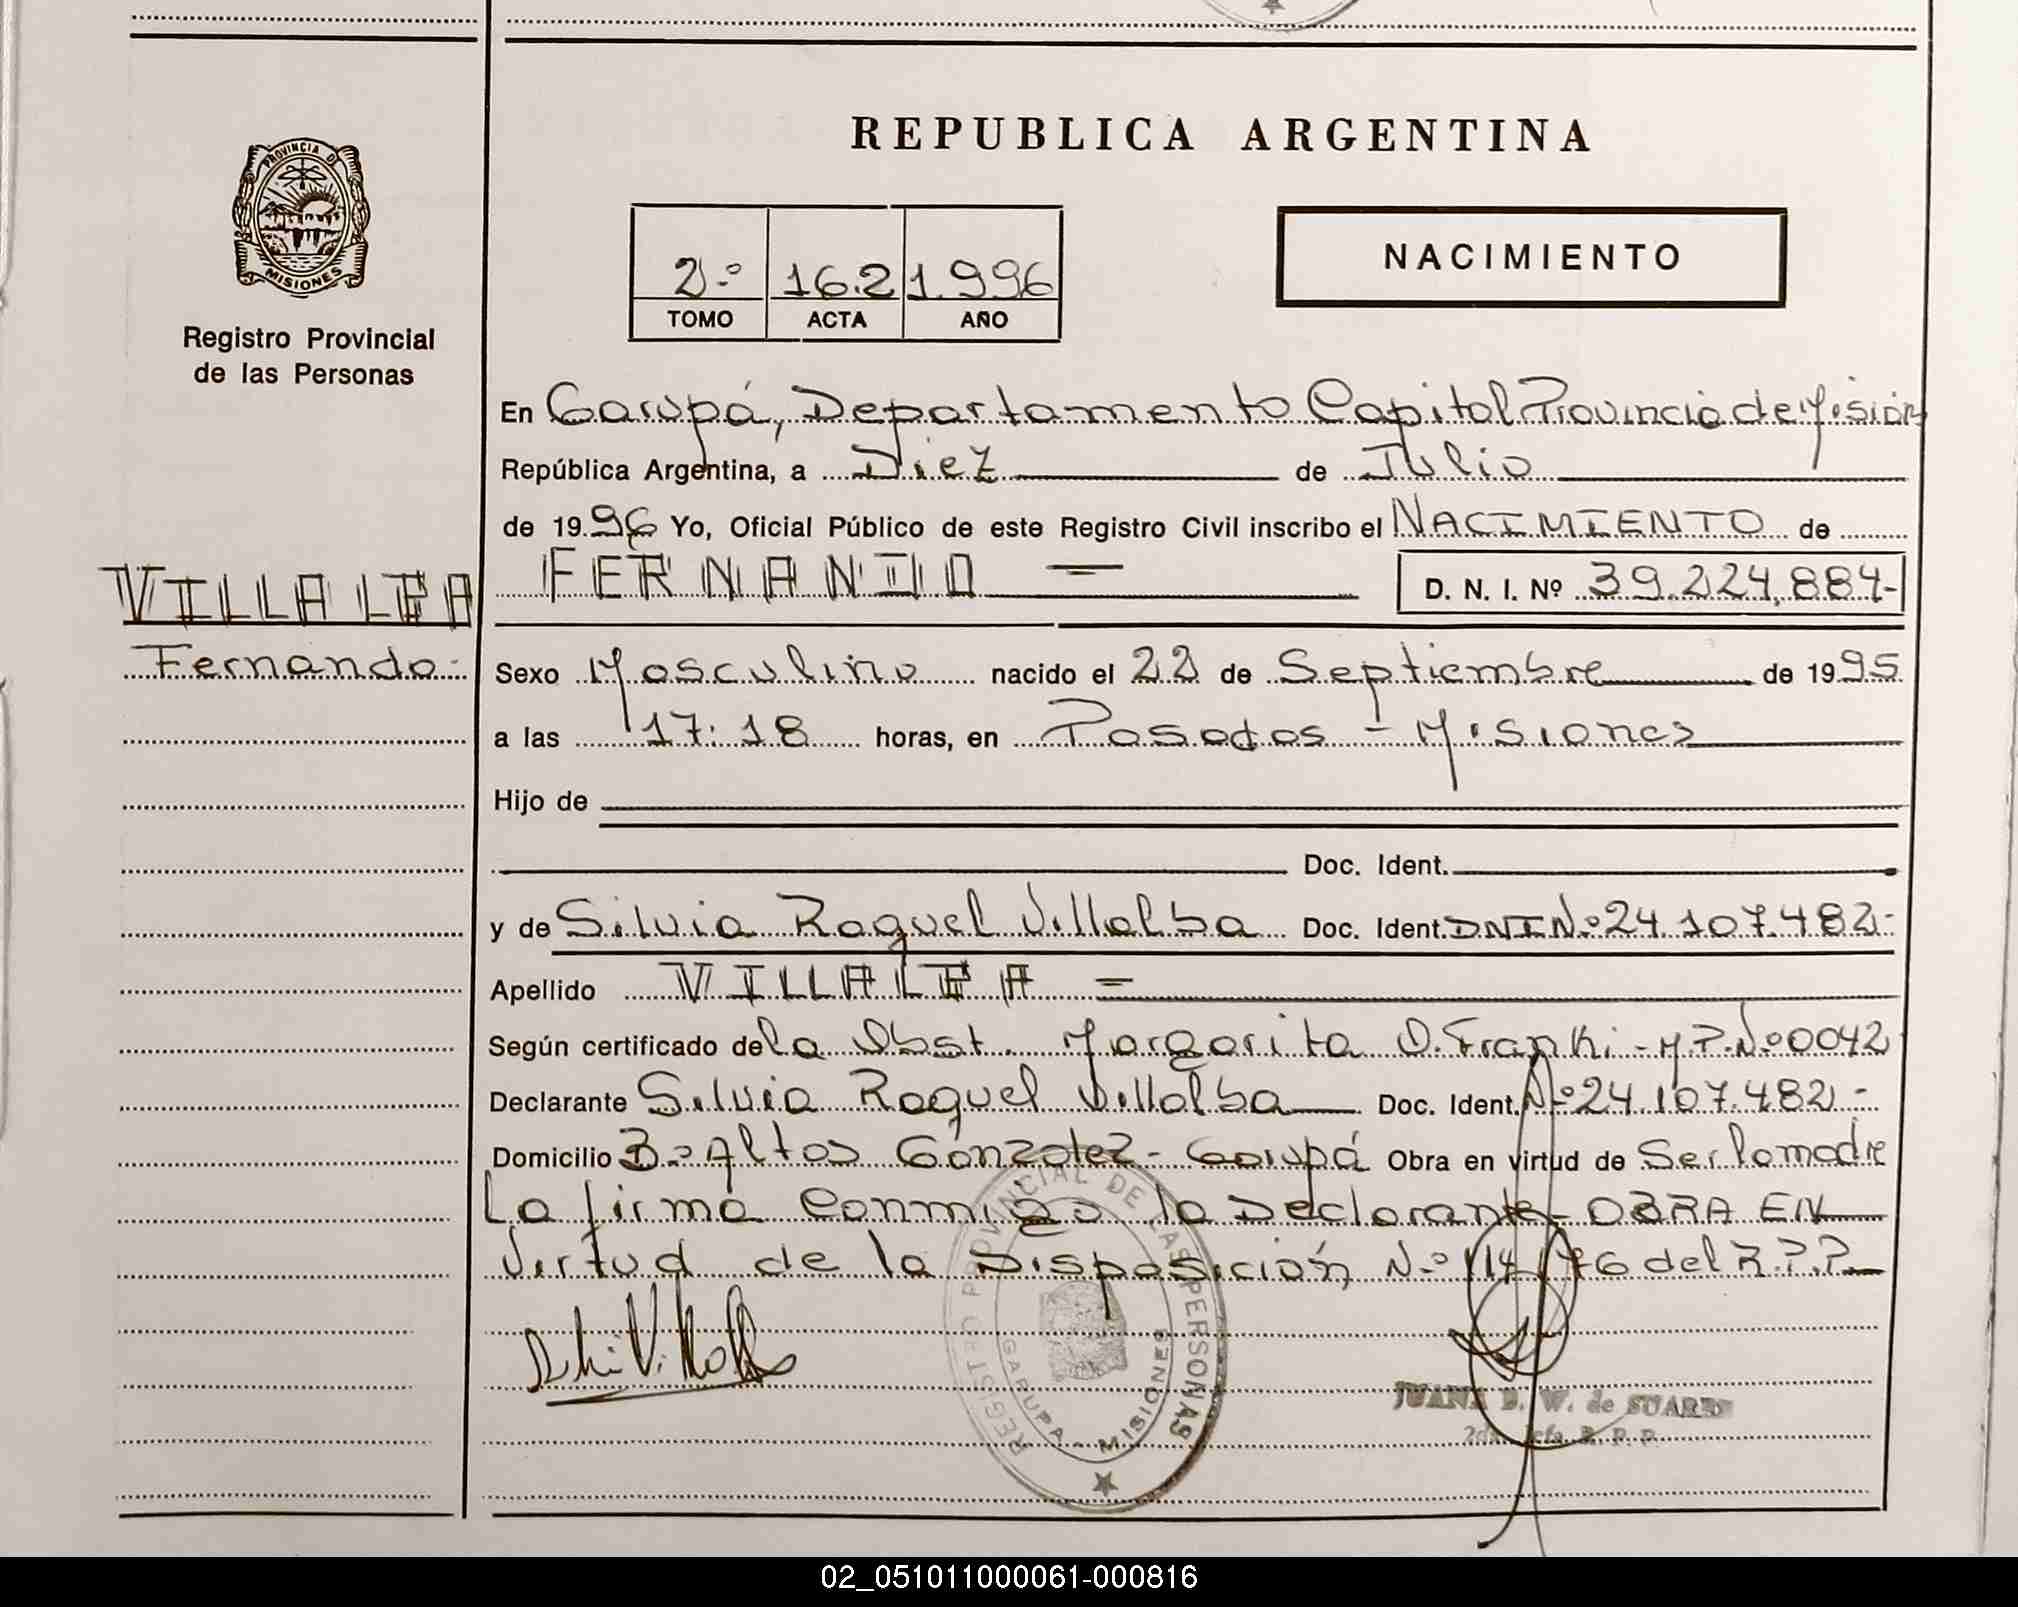 REPUBLICA ARGENTINA
PROVINCIA D
MISIONES
Registro Provincial
de las Personas
2º 162 1.996
TOMO ACTA AÑO
NACIMIENTO
En Garupá, Departamento Capital Provincia de Mision
República Argentina, a Diez de Julio
de 1996 Yo, Oficial Público de este Registro Civil inscribo el NACIMIENTO de
VILLALBA
Fernando.-
FERNANDO =
D. N. I. Nº 39.224.884-
Sexo Masculino nacido el 22 de Septiembre de 1995
a las 17:18 horas, en Posadas - Misiones
Hijo de
Doc. Ident.
y de Silvia Raquel Villalba Doc. Ident. DNI Nº 24.107.482-
Apellido VILLALBA =
Según certificado de la Obst. Margarita O. Franki - M.P. Nº 0042
Declarante Silvia Raquel Villalba Doc. Ident. Nº 24.107.482.-
Domicilio Bº Altos Gónzalez - Garupá Obra en virtud de Ser la madre
La firma conmigo la Declarante - OBRA EN
Virtud de la Disposición Nº 114/76 del R.P.P.
REGISTRO PROVINCIAL DE LAS PERSONAS
GARUPA - MISIONES
JUANA B. W. de SUAREZ
2da. Jefa R. P. P.
02_051011000061-000816